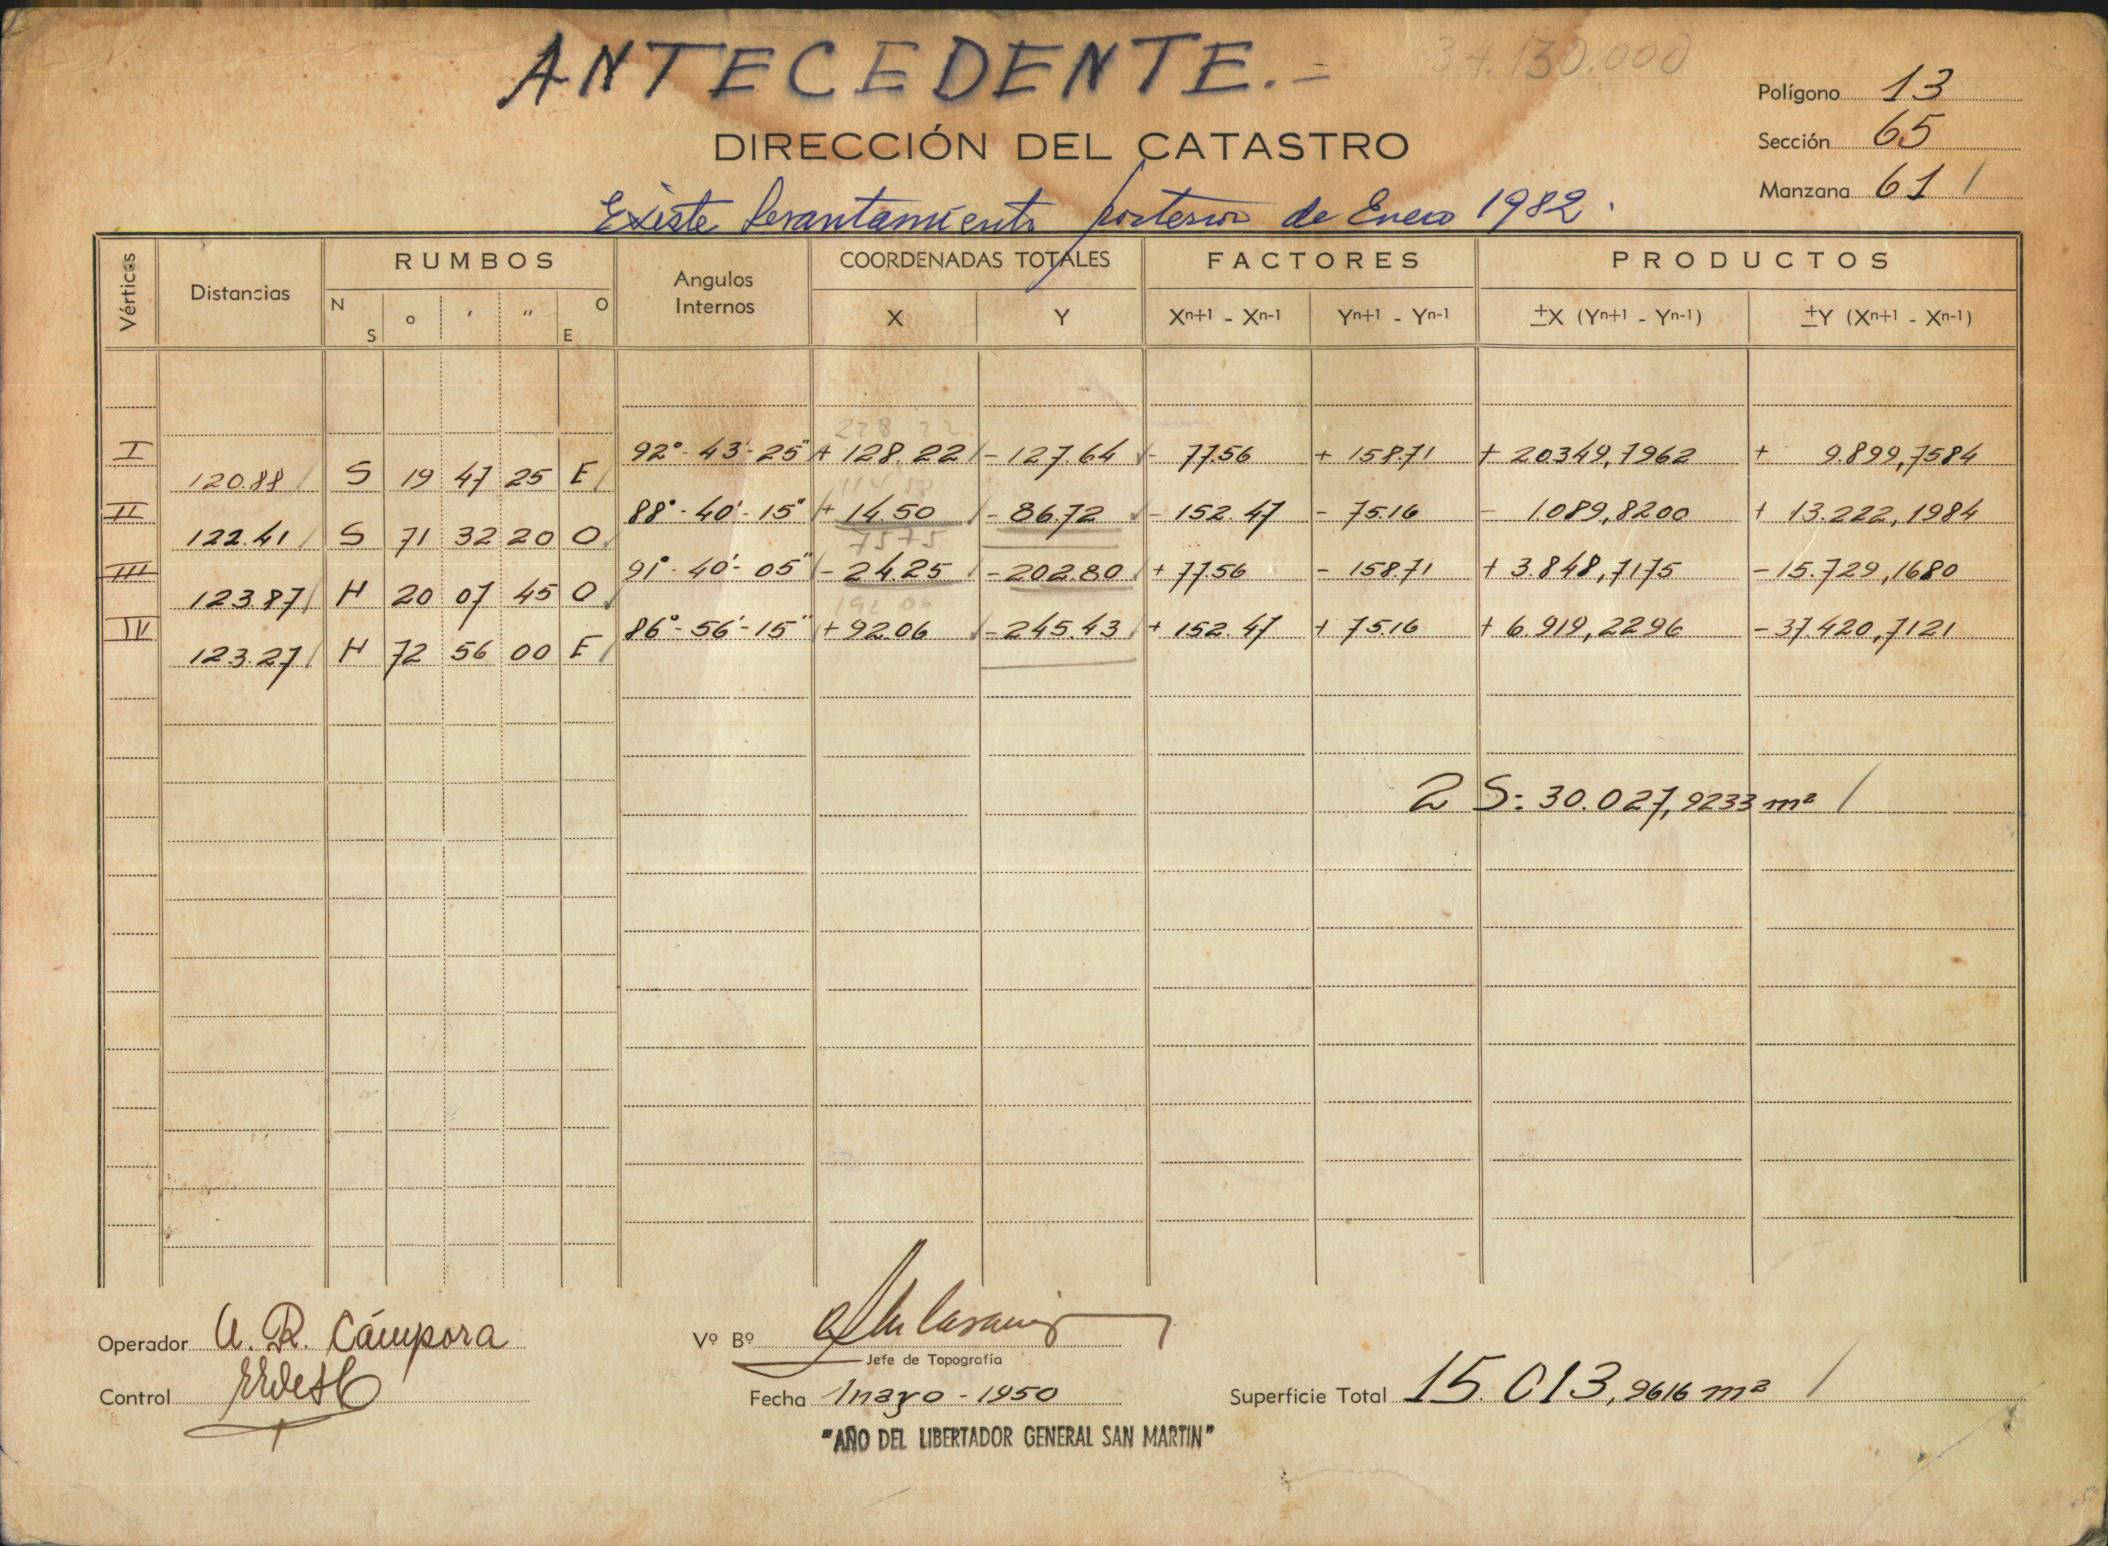 ANTECEDENTE.=
34.130.000
Polígono 13
DIRECCIÓN DEL CATASTRO
Sección 65
Manzana 61 /
Existe levantamiento posterior de Enero 1982.
Vértices Distancias RUMBOS Angulos Internos COORDENADAS TOTALES FACTORES PRODUCTOS
N S o ' " O E X Y Xn+1 - Xn-1 Yn+1 - Yn-1 ±X (Yn+1 - Yn-1) ±Y (Xn+1 - Xn-1)
I 92°-43'-25" + 128.22 / - 127.64 / - 77.56 + 158.71 + 20349,7962 + 9.899,7584
120.88 / S 19 47 25 E /
II 88°-40'-15" + 14.50 / - 86.72 / - 152.47 - 75.16 - 1.089,8200 + 13.222,1984
122.41 / S 71 32 20 O /
75 75
III 91°-40'-05" - 24.25 / - 202.80 / + 77.56 - 158.71 + 3.848,7175 - 15.729,1680
123.87 / N 20 07 45 O /
192 06
IV 86°-56'-15" + 92.06 / - 245.43 / + 152.47 + 75.16 + 6.919,2296 - 37420,7121
123.27 / N 72 56 00 E /
2 S = 30.027,9233 m² /
Operador A. R. Cámpora
Vº Bº
Jefe de Topografía
Control
Fecha mayo - 1950
Superficie Total 15.013,9616 m² /
"AÑO DEL LIBERTADOR GENERAL SAN MARTIN"